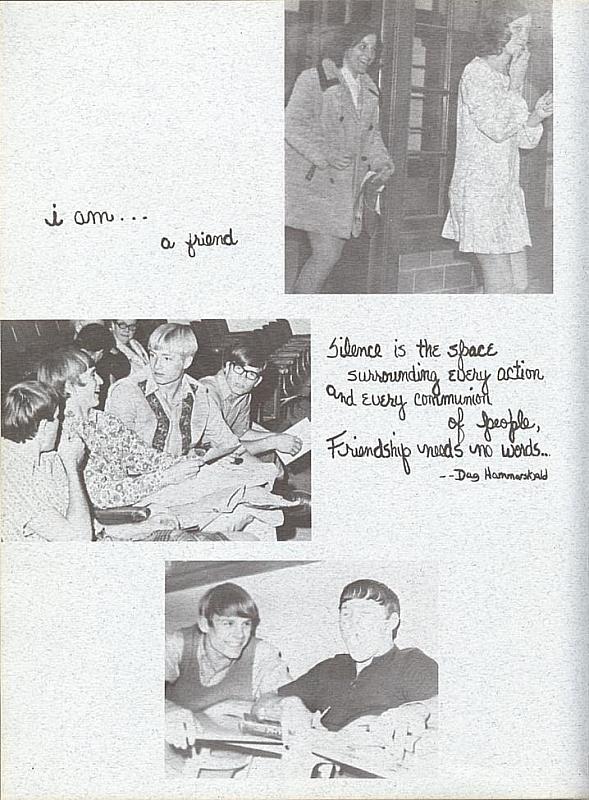 i am...
a friend
Silence is the space
surrounding every action
and every communion
of people,
Friendship needs no words...
--Dag Hammarskjald